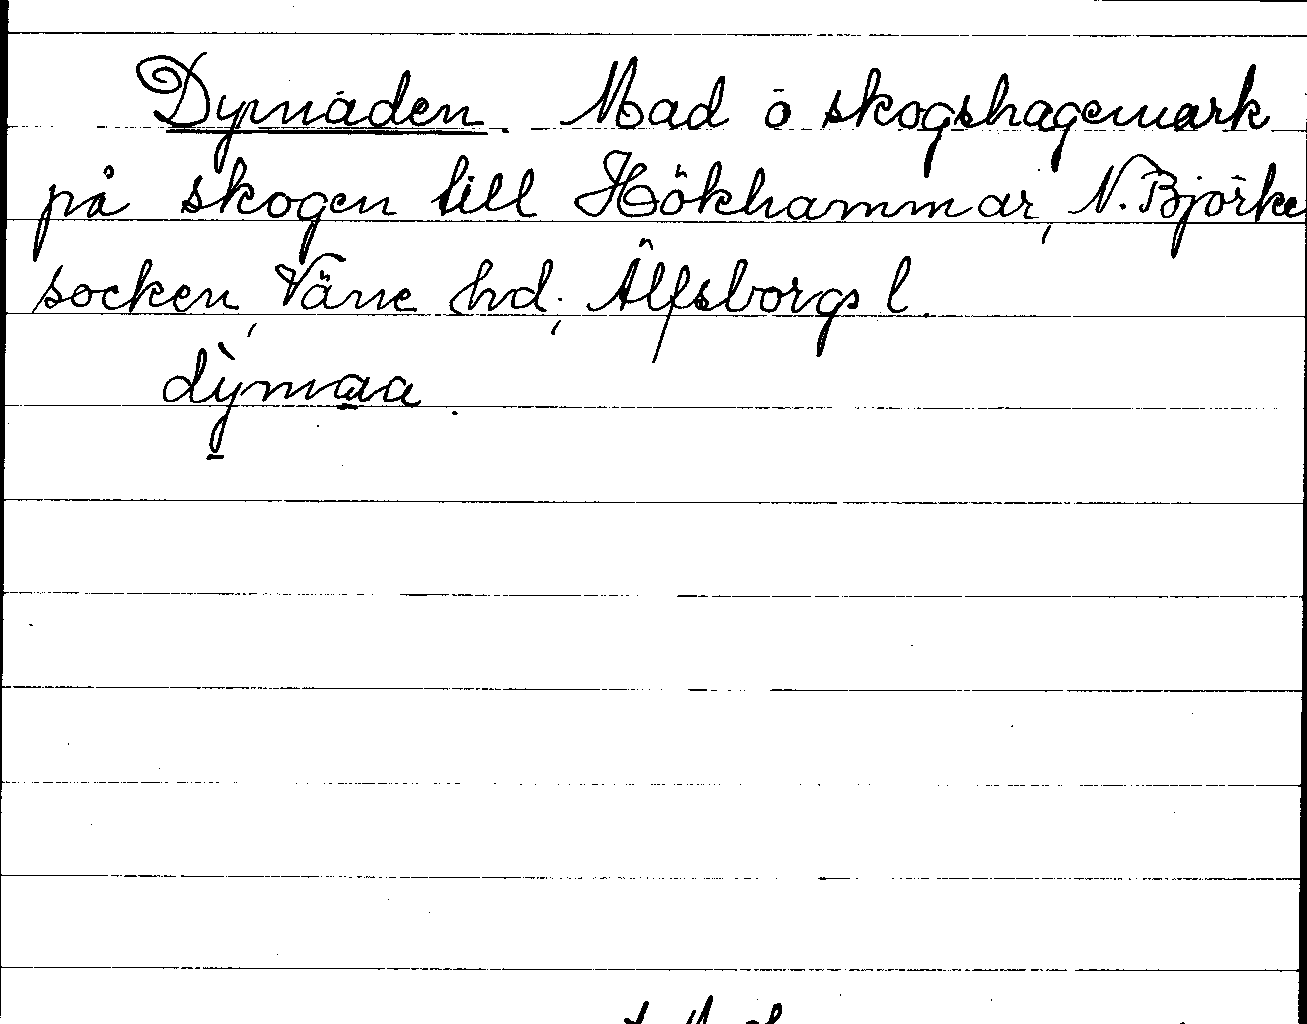 Dymaden. Mad o skogshagemark
på skogen till Hökhammar, N. Björke
socken, Väne hd, Älfsborgs l.
dỳmaa.